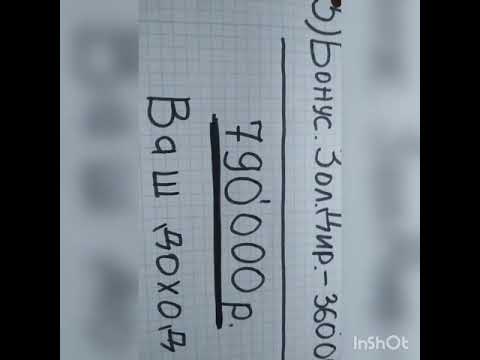 3) Бонус. Зол.Дир.-3600
790'000 р.
Ваш доход
InShOt